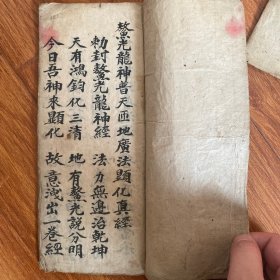 鰲光龍神普天匝地廣法顯化真經
勅封鰲光龍神經　法力無邊治乾坤
天有鴻鈞化三清　地有鰲光說分明
今日吾神來顯化　故意洩出一卷經